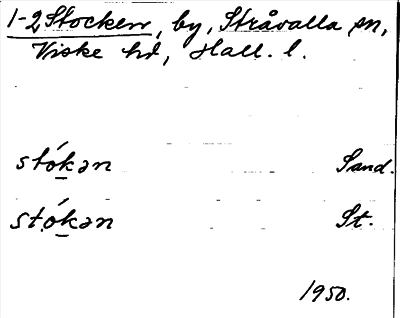 1-2 Stocken, by, Stråvalla sn,
Viske hd, Hall. l.
stó̱kən Sand.
stó̱kən St.
1950.